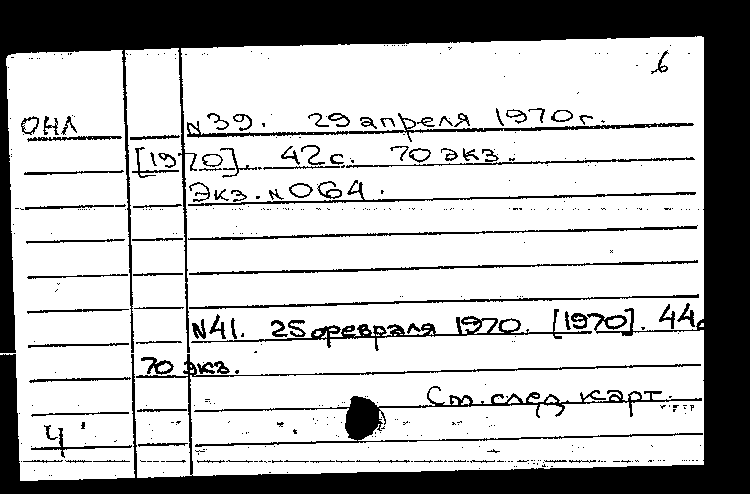 6
ОНЛ N39. 29 апреля 1970г.
[1970]. 42с. 70 экз.
Экз. N064.
N41. 25 февраля 1970. [1970]. 44с
70 экз.
См. след. карт.
Ч